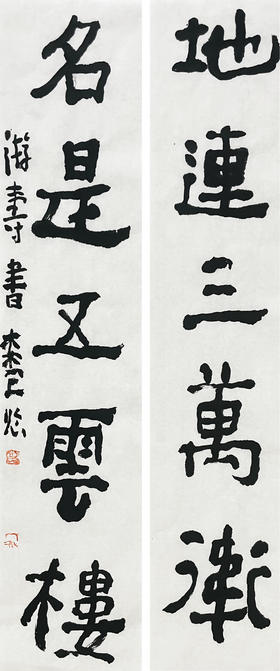 地連三萬衛
名是五雲樓
游壽書